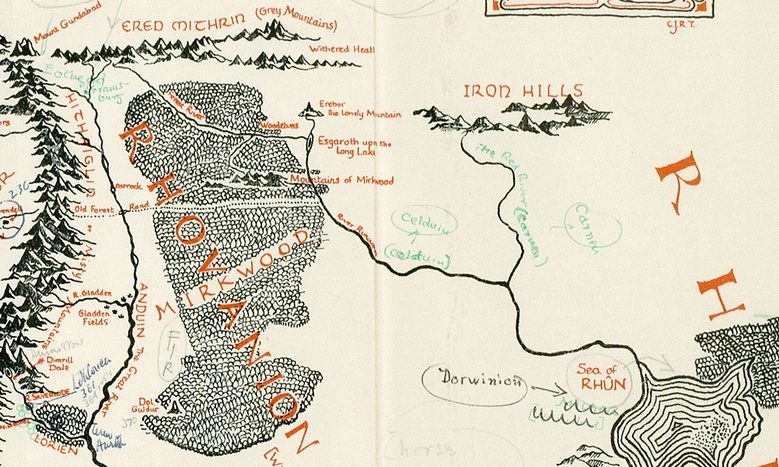 Mount Gundabad
ERED MITHRIN (Grey Mountains)
C.J.R.T.
Withered Heath
Framsburg
IRON HILLS
Forest River
Erebor
The Lonely Mountain
Woodelves
Esgaroth upon the
Long Lake
HITHAEGLIR
Mountains of Mirkwood
The Red River (Carnen)
Old Forest Road
River Running
Celduin
(Celduin)
Carnen
RHOVANION
MIRKWOOD
R H
Misty Mountains
R. Gladden
Gladden
Fields
ANDUIN The Great River
Dimrill
Dale
Dorwinion
Sea of
RHÛN
Dol
Guldur
LORIEN